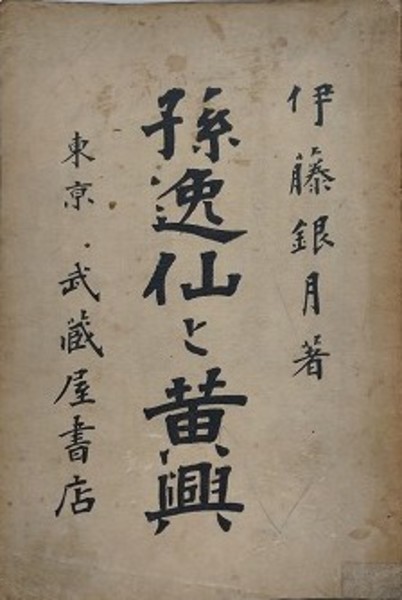 伊藤銀月著
孫逸仙と黄興
東京 武蔵屋書店